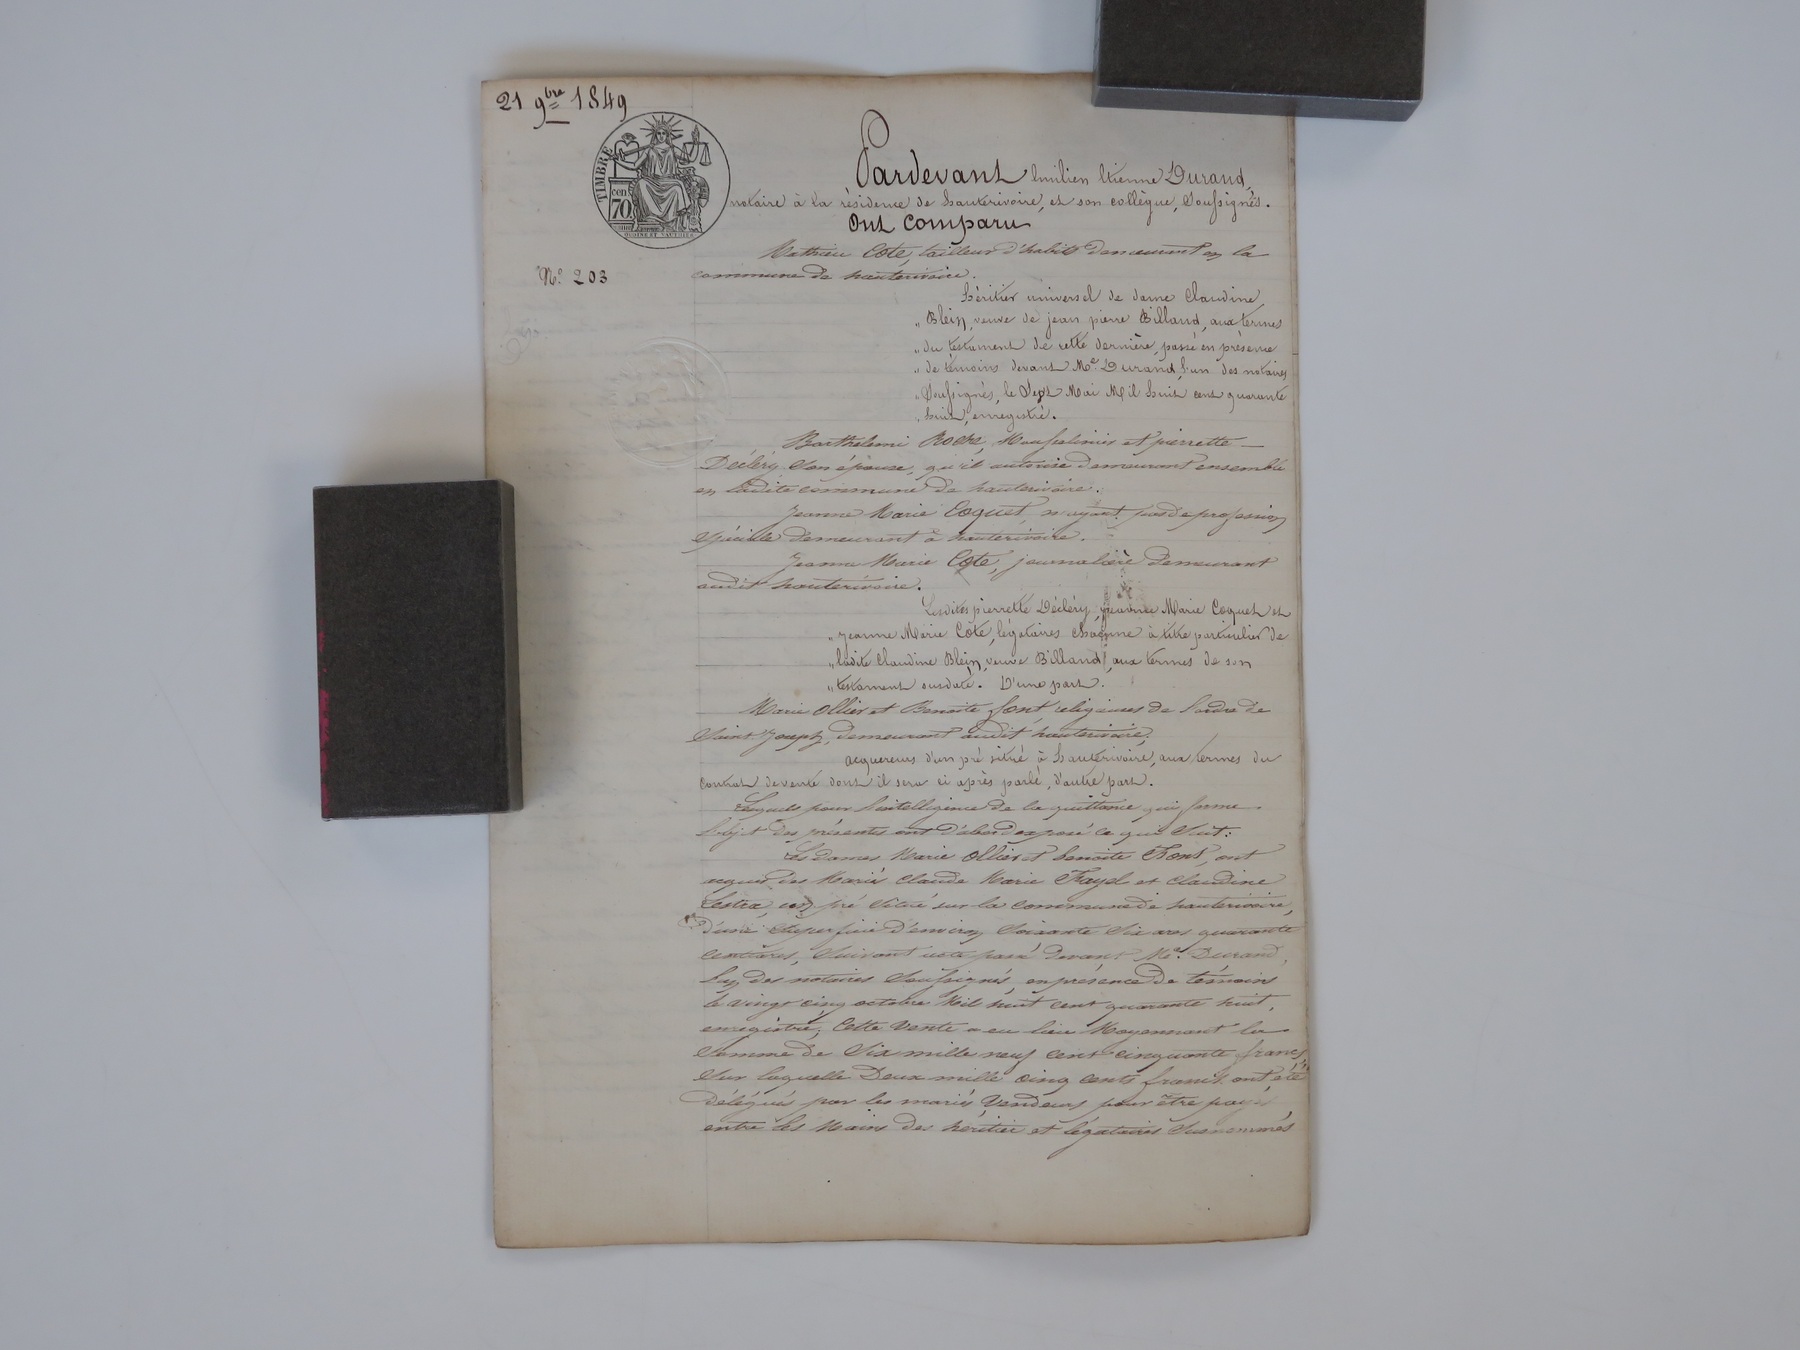 21 9bre 1849
TIMBRE
cen
70
Pardevant Emilien Etienne Durand,
notaire à la résidence de hauterivoire, et son collègue, soussignés.
Ont comparu
Mathieu Côte, tailleur d'habits demeurant en la
commune de hauterivoire.
N° 203
héritier universel de dame Claudine
„ Blein, veuve de jean pierre Billand, aux termes
„ du testament de cette dernière, passé en présence
„ de témoins devant Me. Durand, l'un des notaires
„ soussignés, le Sept Mai Mil huit cent quarante
„ huit, enregistré.
Barthelemi Roche, Mousselinier et pierrette
Décléry son épouse, qu'il autorise demeurant ensemble
en ladite commune de hauterivoire.
Jeanne Marie Coquet, n'ayant pas de profession
spéciale demeurant à hauterivoire.
Jeanne Marie Côte, journalière demeurant
audit hauterivoire.
Lesdites pierrette Décléry, jeanne Marie Coquet et
„ jeanne Marie Côte, légataires chacune à titre particulier de
„ ladite Claudine Blein, veuve Billand, aux termes de son
„ testament susdaté. D'une part.
Marie Ollier et Benoite font, religieuses de l'ordre de
Saint Joseph, demeurant audit hauterivoire,
acquereurs d'un pré situé à hauterivoire, aux termes du
contrat de vente dont il sera ci après parlé, d'autre part.
Lesquels pour l'intelligence de la quittance qui forme
l'objet des présentes ont d'abord exposé ce qui suit:
Les dames Marie Ollier et benoite Font, ont
acquis des Mariés Claude Marie Fayel et Claudine
Lestra, un pré situé sur la commune de hauterivoire,
d'une superficie d'environ soixante six ares quarante
centiares, suivant acte passé devant Me. Durand,
l'un des notaires soussignés, en présence de témoins
le vingt cinq octobre Mil huit cent quarante huit,
enregistré; Cette Vente a eu lieu Moyennant la
somme de Six mille neuf cent cinquante francs,
sur laquelle Deux mille cinq cents francs ont été
délégués par les mariés Vendeurs pour être payés
entre les Mains des héritier et légataires susnommés